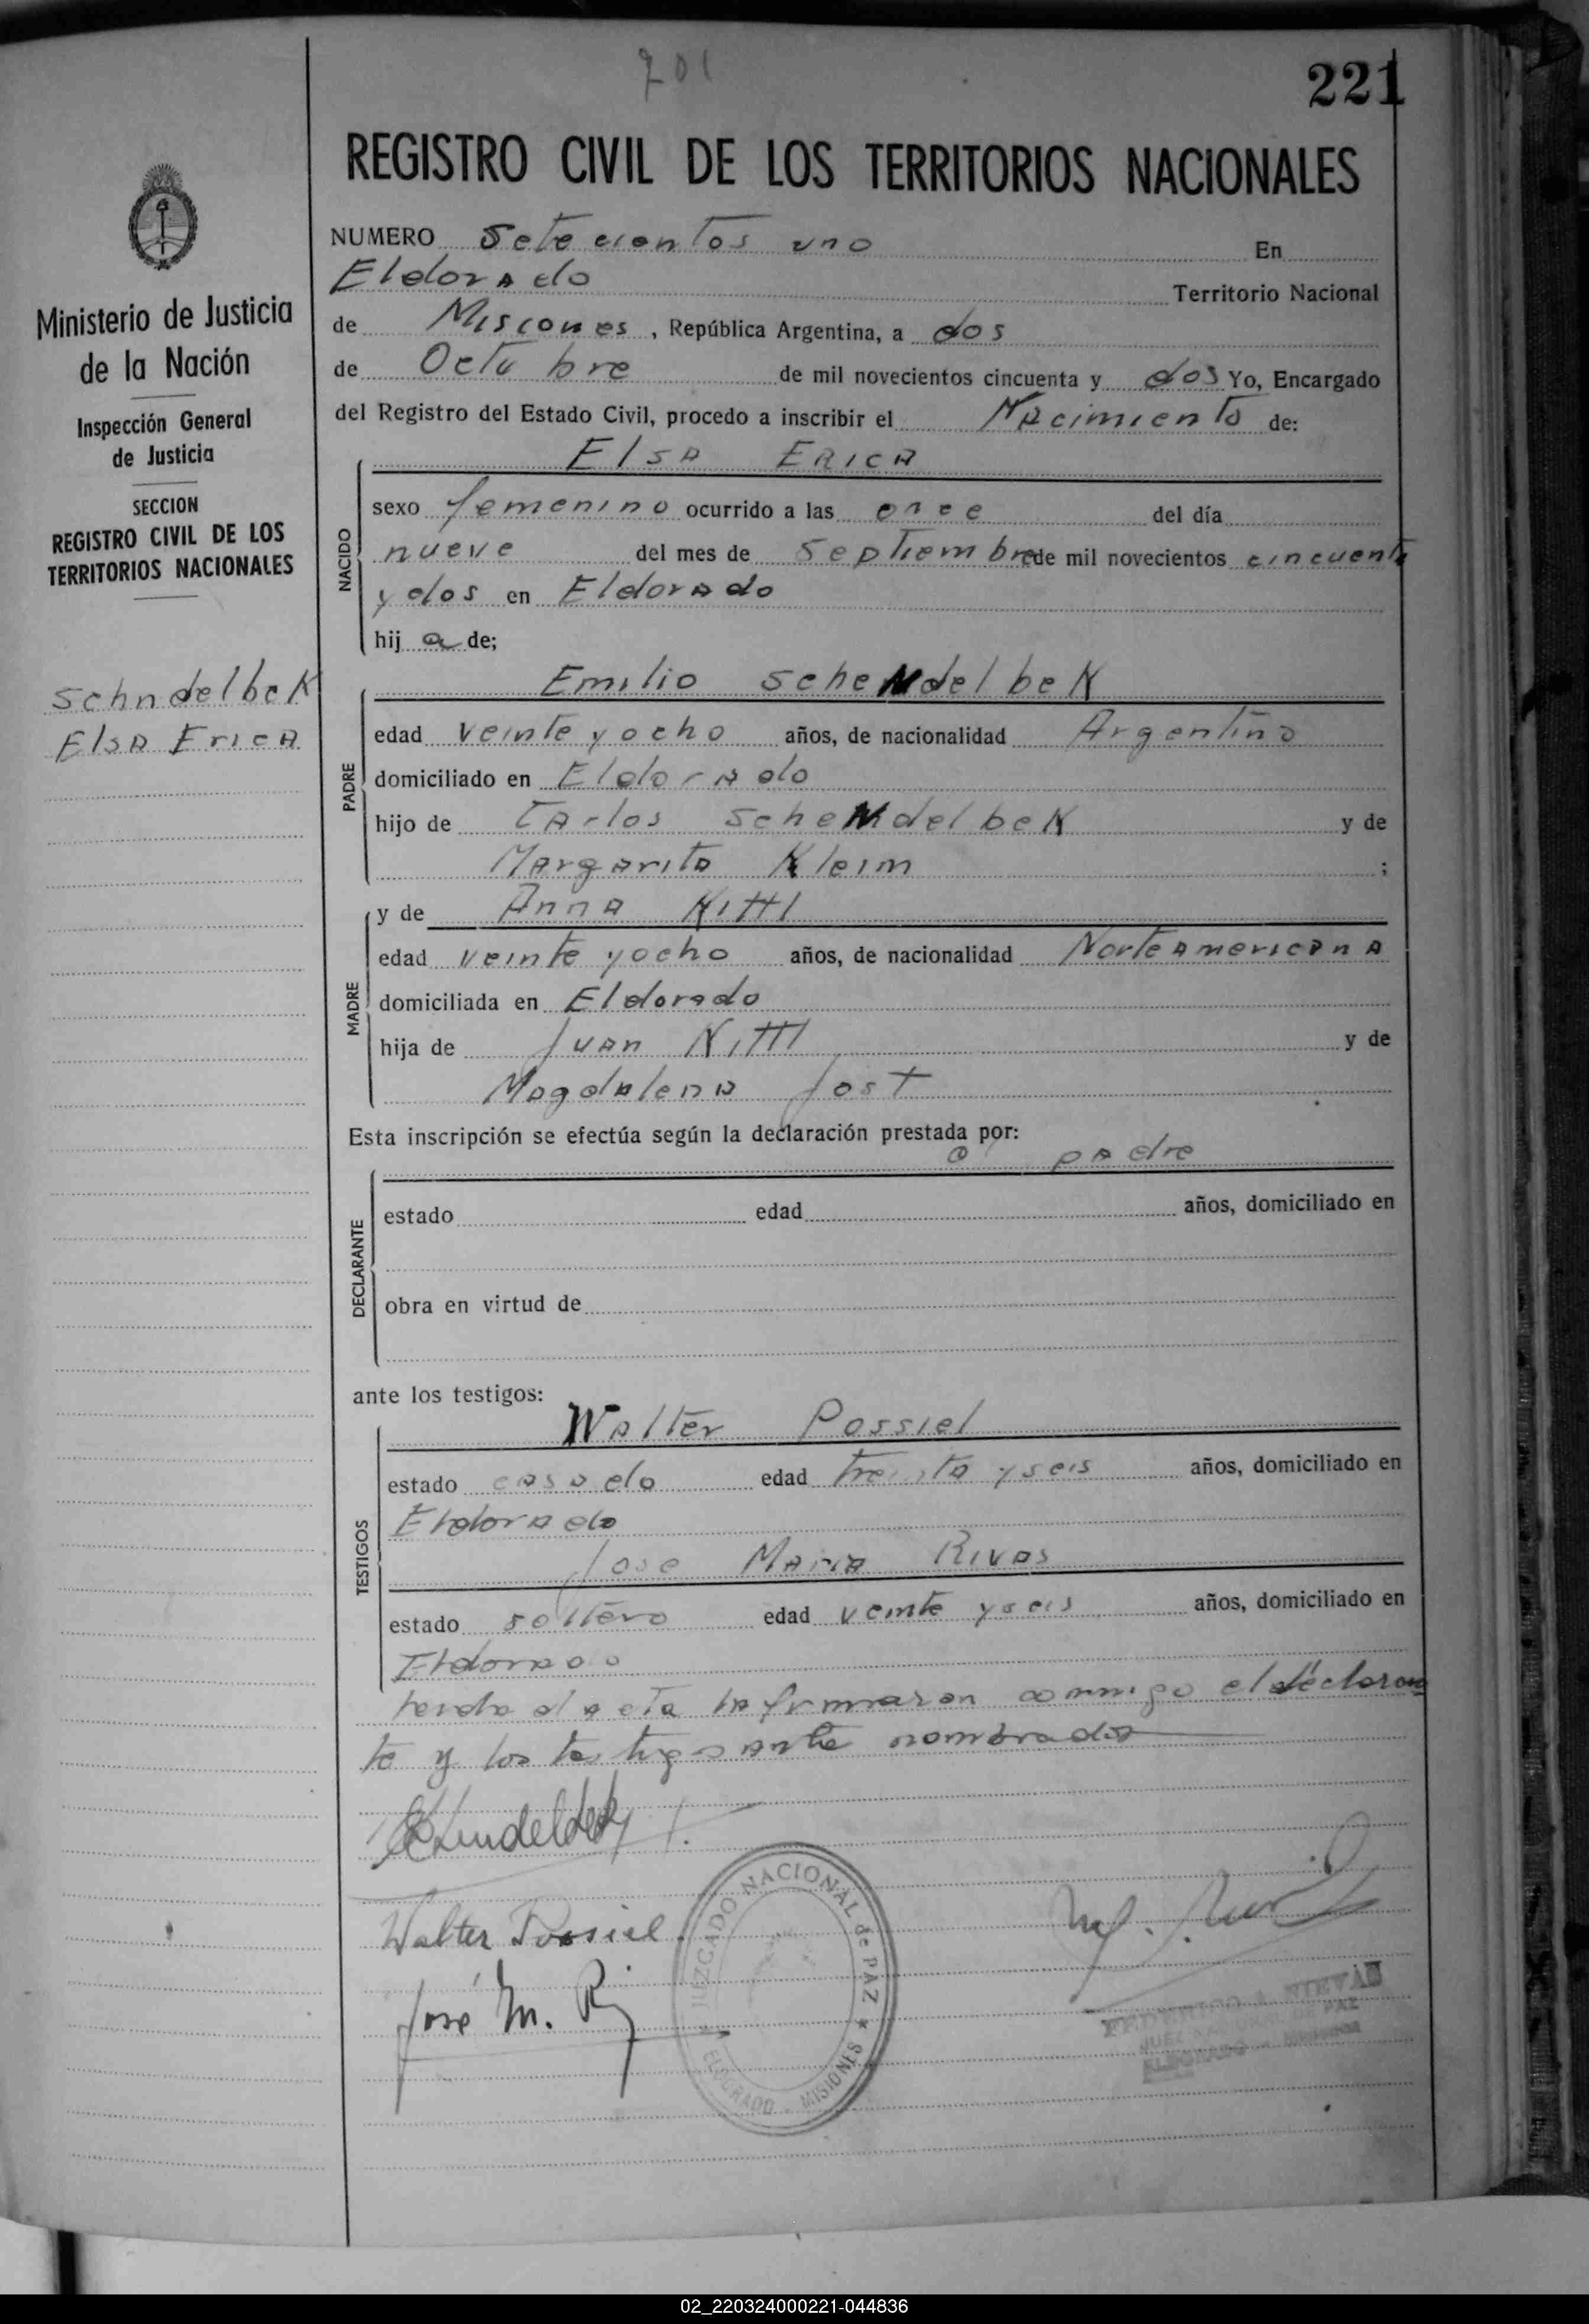 701
221
REGISTRO CIVIL DE LOS TERRITORIOS NACIONALES
Ministerio de Justicia
de la Nación
Inspección General
de Justicia
SECCION
REGISTRO CIVIL DE LOS
TERRITORIOS NACIONALES
SchndelbeK
Elsa Erica
NUMERO Setecientos uno En
Eldorado Territorio Nacional
de Misiones, República Argentina, a dos
de Octubre de mil novecientos cincuenta y dos Yo, Encargado
del Registro del Estado Civil, procedo a inscribir el Nacimiento de:
Elsa Erica
NACIDO
sexo femenino ocurrido a las once del día
nueve del mes de Septiembre de mil novecientos cincuenta
y dos en Eldorado
hij a de;
Emilio ScheNdelbeK
PADRE
edad veinte y ocho años, de nacionalidad Argentino
domiciliado en Eldorado
hijo de Carlos ScheNdelbeK y de
Margarita Kleim ;
y de Anna Kittl
MADRE
edad veinte y ocho años, de nacionalidad Norteamericana
domiciliada en Eldorado
hija de Juan Kittl y de
Magdalena Jost
Esta inscripción se efectúa según la declaración prestada por:
padre
DECLARANTE
estado edad años, domiciliado en
obra en virtud de
ante los testigos:
Walter Possiel
TESTIGOS
estado casado edad treinta y seis años, domiciliado en
Eldorado
Jose Maria Rivas
estado soltero edad veinte y seis años, domiciliado en
Eldorado
el acta la firmaron conmigo el declaran
te y los testigos ante nombrados
Walter Possiel
José M.
JUZGADO NACIONAL de PAZ ★ ELDORADO - MISIONES
JUEZ NACIONAL DE PAZ
ELDORADO - Misiones
02_220324000221-044836